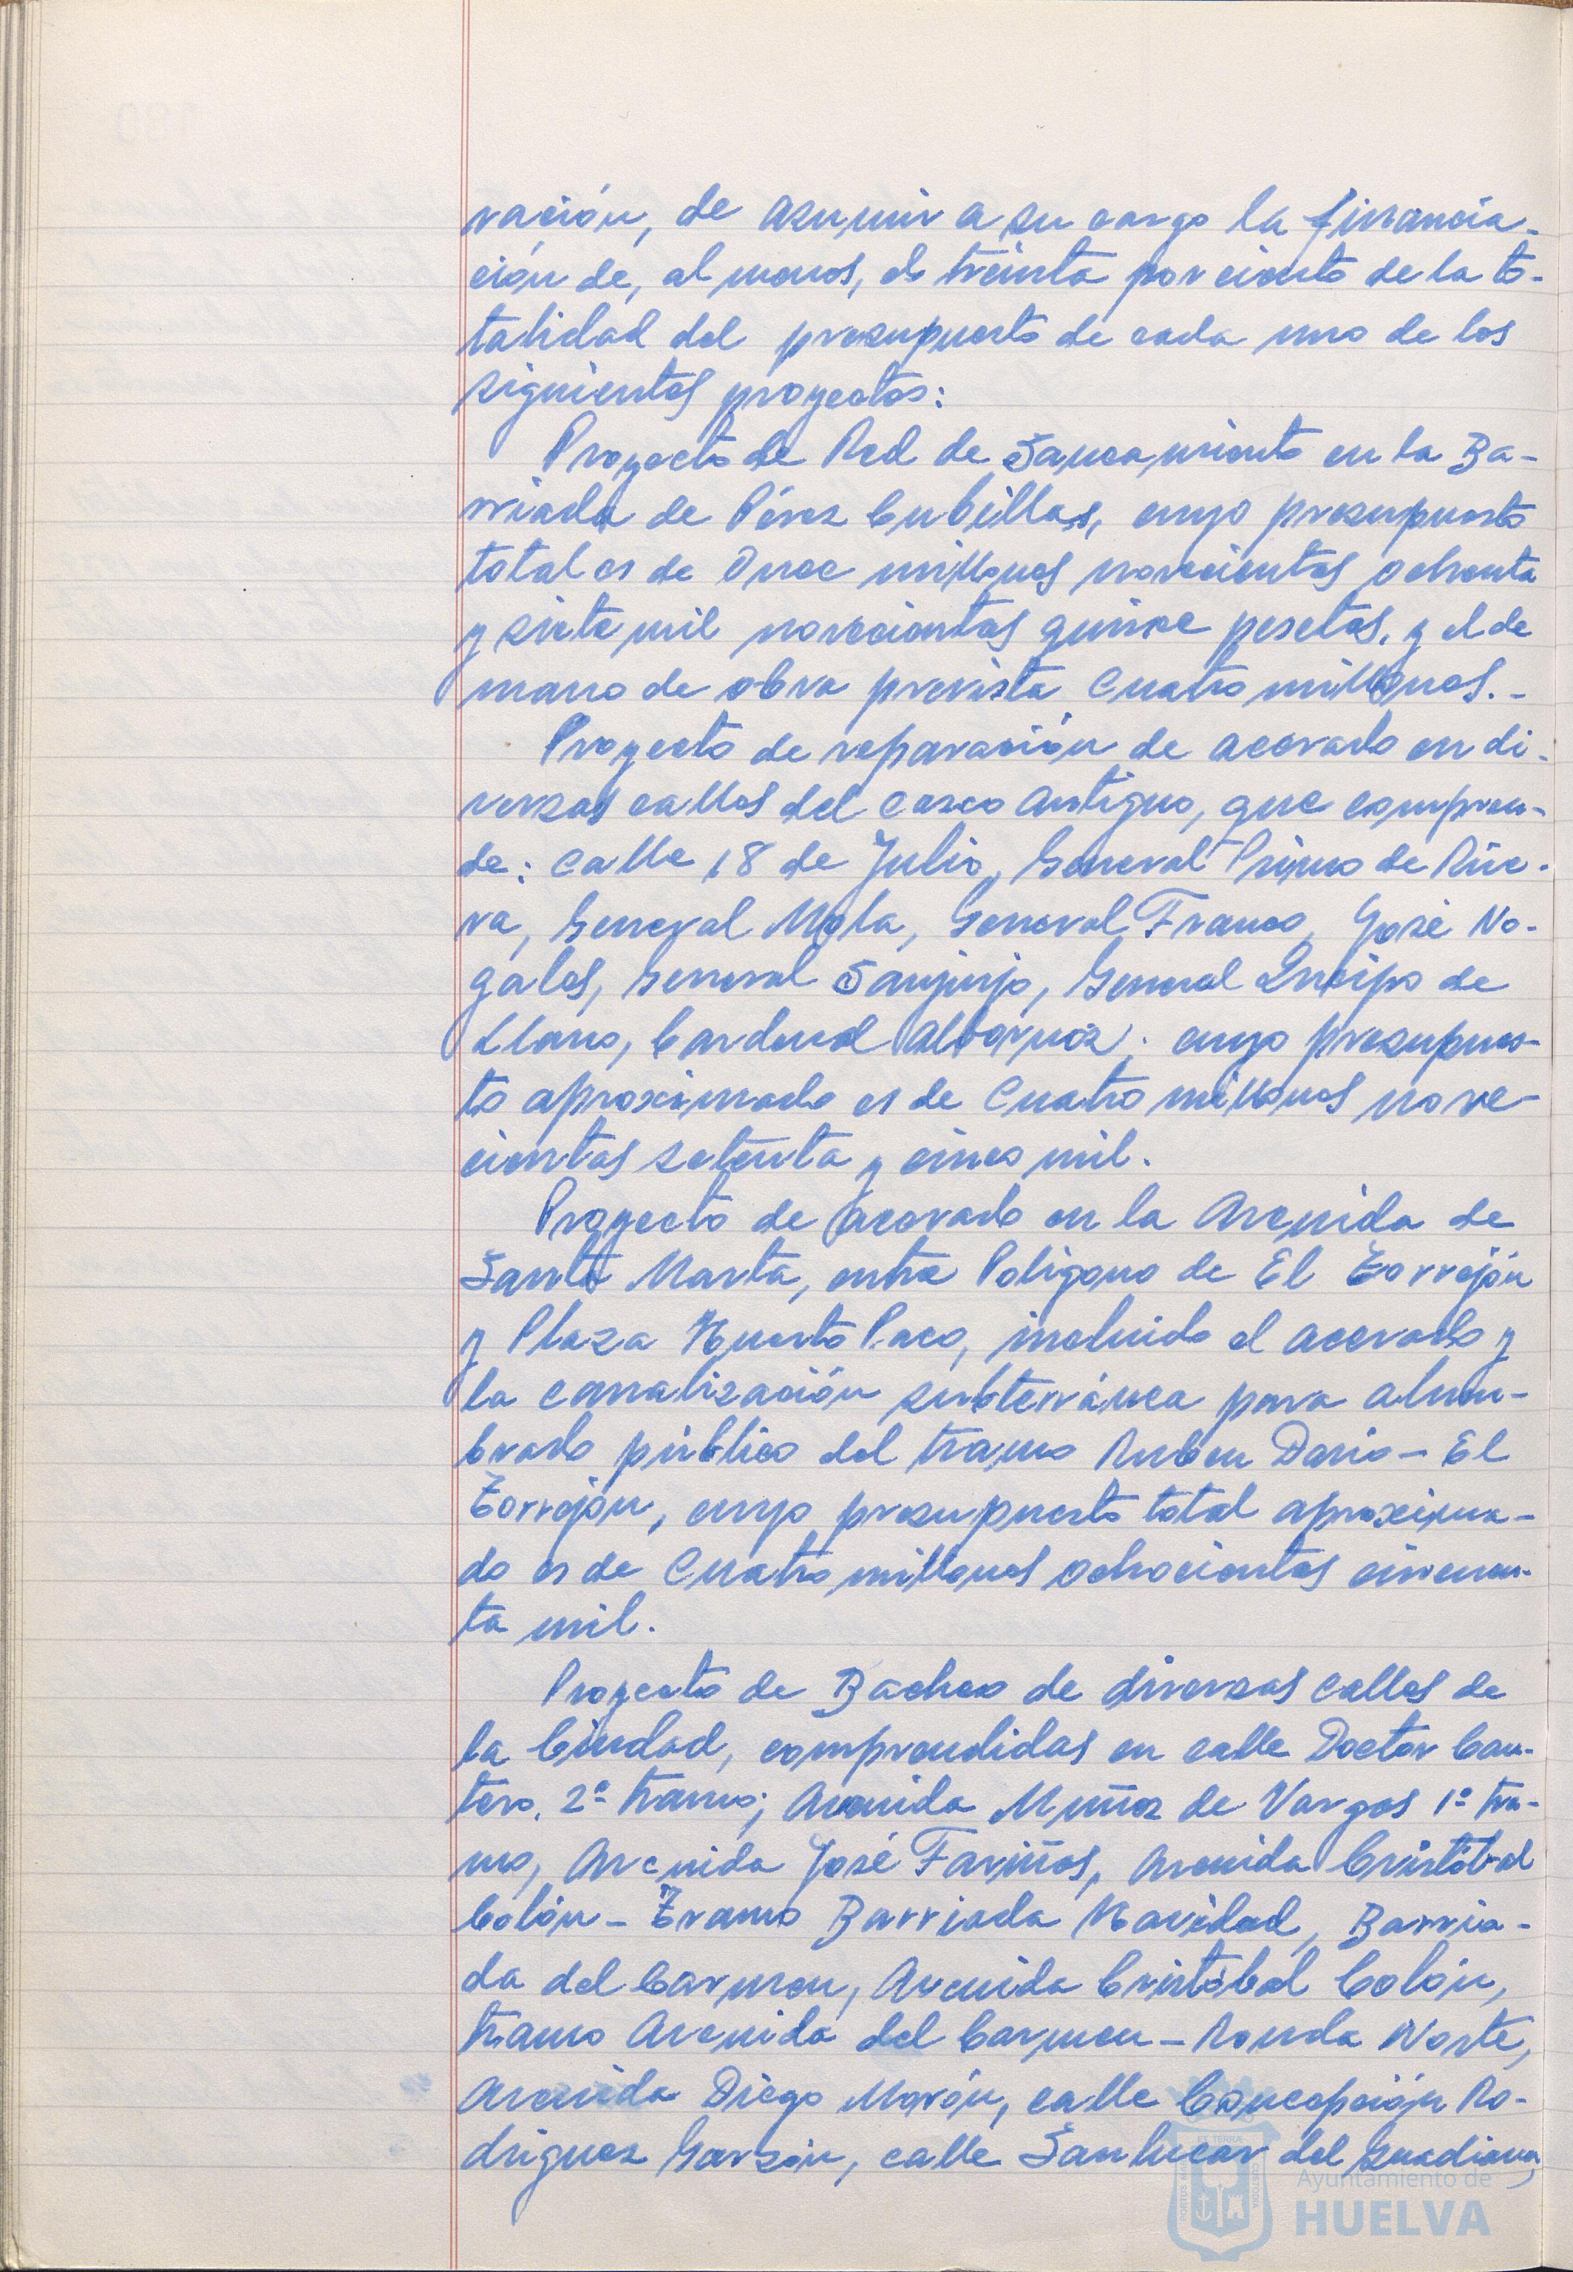 vación, de asumir a su cargo la financia-
ción de, al menos, el treinta por ciento de la to-
talidad del presupuesto de cada uno de los
siguientes proyectos:
Proyecto de Red de Saneamiento en la Ba-
rriada de Pérez Cubillas, cuyo presupuesto
total es de Once millones novecientas ochenta
y siete mil novecientas quince pesetas, y el de
mano de obra prevista Cuatro millones.-
Proyecto de reparación de acerado en di-
versas calles del casco antiguo, que compren-
de: calle 18 de Julio, General Primo de Rive-
ra, General Mola, General Franco, José No-
gales, General Sanjurjo, General Queipo de
Llano, Cardenal Albornoz; cuyo presupues-
to aproximado es de Cuatro millones nove-
cientas setenta y cinco mil.
Proyecto de acerado en la Avenida de
Santa Marta, entre Polígono de El Torrejón
y Plaza Huerto Paco, incluido el acerado y
la canalización subterránea para alum-
brado público del tramo Ruben Dario - El
Torrejón, cuyo presupuesto total aproxima-
do es de Cuatro millones ochocientas cincuen-
ta mil.
Proyecto de Bacheo de diversas calles de
la Ciudad, comprendidas en calle Doctor Can-
tero, 2º tramo; Avenida Muñoz de Vargas 1º tra-
mo, Avenida José Fariñas, Avenida Cristóbal
Colón - Tramo Barriada Navidad, Barria-
da del Carmen, Avenida Cristóbal Colón,
tramo Avenida del Carmen - Ronda Norte,
Avenida Diego Morón, calle Concepción Ro-
driguez Garzón, calle Sanlucar del Guadiana,
PORTUS MARIS ET TERRÆ CUSTODIA
Ayuntamiento de
HUELVA